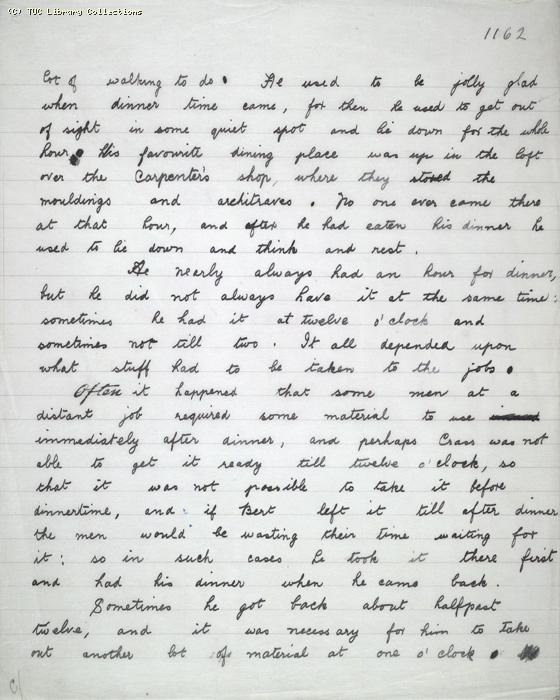 (C) TUC Library Collections
1162
lot of walking to do. He used to be jolly glad
when dinner time came, for then he used to get out
of sight in some quiet spot and lie down for the whole
hour. His favourite dining place was up in the loft
over the Carpenter's shop, where they stored the
mouldings and architraves. No one ever came there
at that hour, and after he had eaten his dinner he
used to lie down and think and rest.
He nearly always had an hour for dinner,
but he did not always have it at the same time:
sometimes he had it at twelve o'clock and
sometimes not till two. It all depended upon
what stuff had to be taken to the jobs.
Often it happened that some men at a
distant job required some material to use
immediately after dinner, and perhaps Crass was not
able to get it ready till twelve o'clock, so
that it was not possible to take it before
dinnertime, and if Bert left it till after dinner
the men would be wasting their time waiting for
it: so in such cases he took it there first
and had his dinner when he came back.
Sometimes he got back about halfpast
twelve, and it was necessary for him to take
out another lot of material at one o'clock.